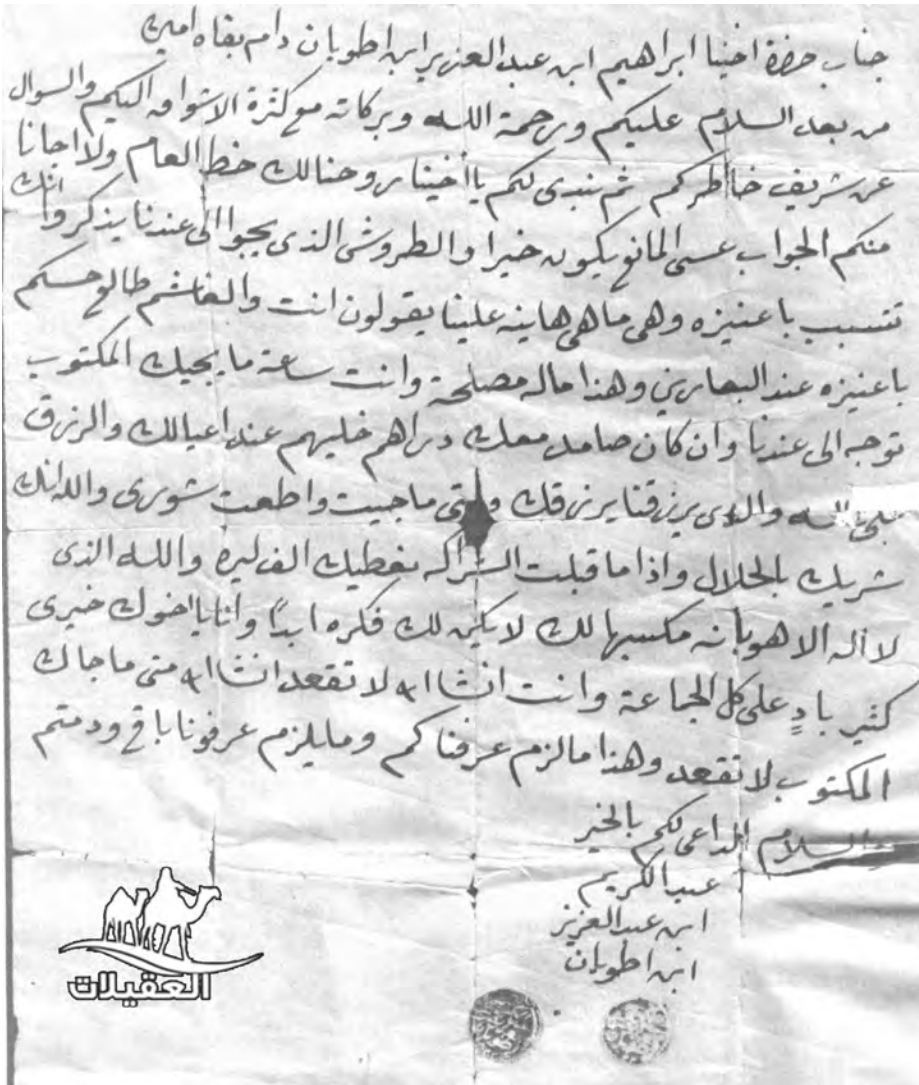 جناب حضرة اخينا ابراهيم ابن عبد العزيز ابن اطوبان دام بقاه امين
من بعد السلام عليكم ورحمة الله وبركاته مع كثرة الاشواق اليكم والسوال
عن شريف خاطركم ثم نبدى لكم يا أخينا روحنالك خط العام ولا اجانا
منكم الجواب عسى المانع يكون خيرا والطروش الذى يجوا الى عندنا يذكروا انك
تتسبب باعنيزه وهى ماهى هاينه علينا يقولون انت والغاشم طالع حسكم
باعنيزه عند البهارين وهذا ماله مصلحة وانت ساعة ما يجيك المكتوب
توجه الى عندنا وان كان صامد معك دراهم خليهم عند اعيالك والرزق
على الله والذى يرزقنا يرزقك ومتى ماجيت واطعت شورى والله انك
شريك بالحلال واذا ما قبلت الشراكه نعطيك الف ليره والله الذى
لا اله الا هو بانه مكسبها لك لا يكن لك فكره ابدًا وانا يا اخوك خيرى
كثير بادٍ على كل الجماعة وانت انشا الله لا تقعد انشا الله متى ماجاك
المكتوب لا تقعد وهذا مالزم عرفناكم ومايلزم عرفونا باقى ودمتم
والسلام الداعى لكم بالخير
عبد الكريم
ابن عبد العزيز
ابن اطوبان
العقيلات